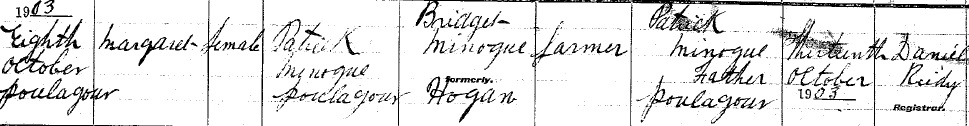 1903
Eighth
October
Poulagour
Margaret
Female
Patrick
Minogue
Poulagour
Bridget
Minogue
formerly
Hogan
Farmer
Patrick
Minogue
Father
Poulagour
Thirteenth
October
1903
Daniel
Reidy
Registrar.